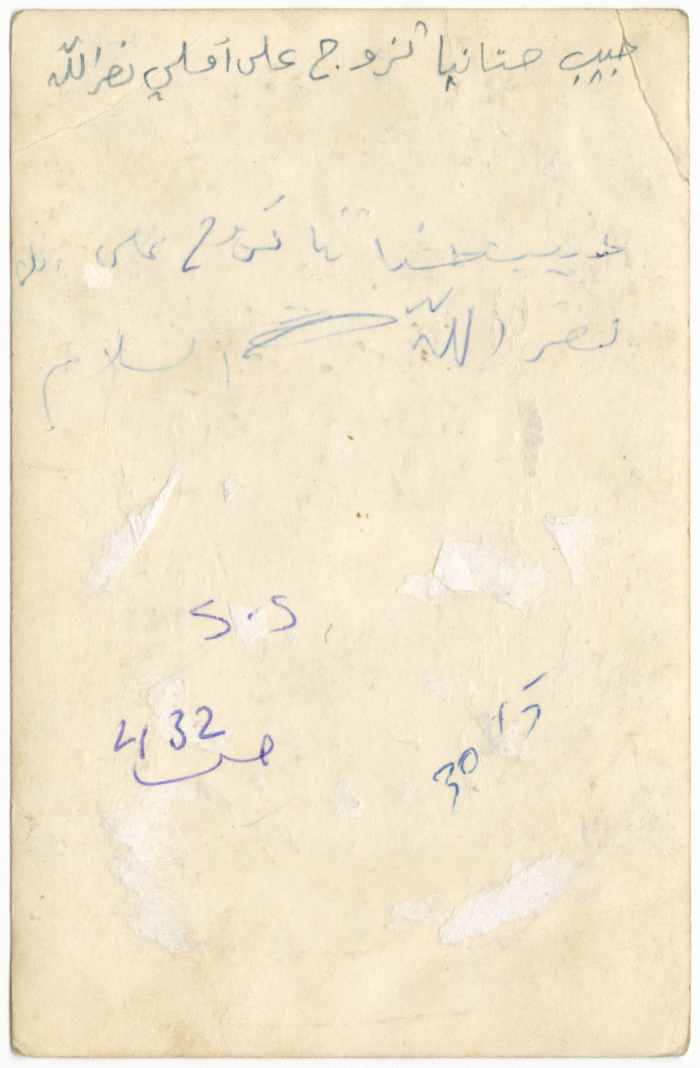 حبيب حنانيا تزوج على أملي نصر الله
حبيب حنا نيا تزوج على
نصر الله السلام
S.S
432 ص
30